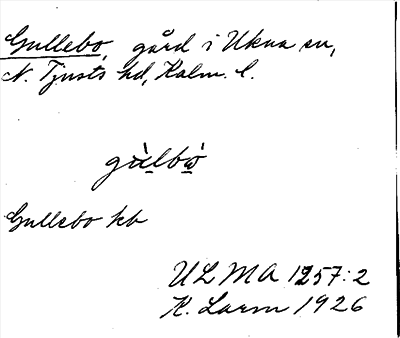 Gullebo, gård i Ukna sn,
N. Tjusts hd, Kalm. l.
gu̱̇̀lbὼ̱
Gullebo kb
ULMA 1257:2
K. Larm 1926